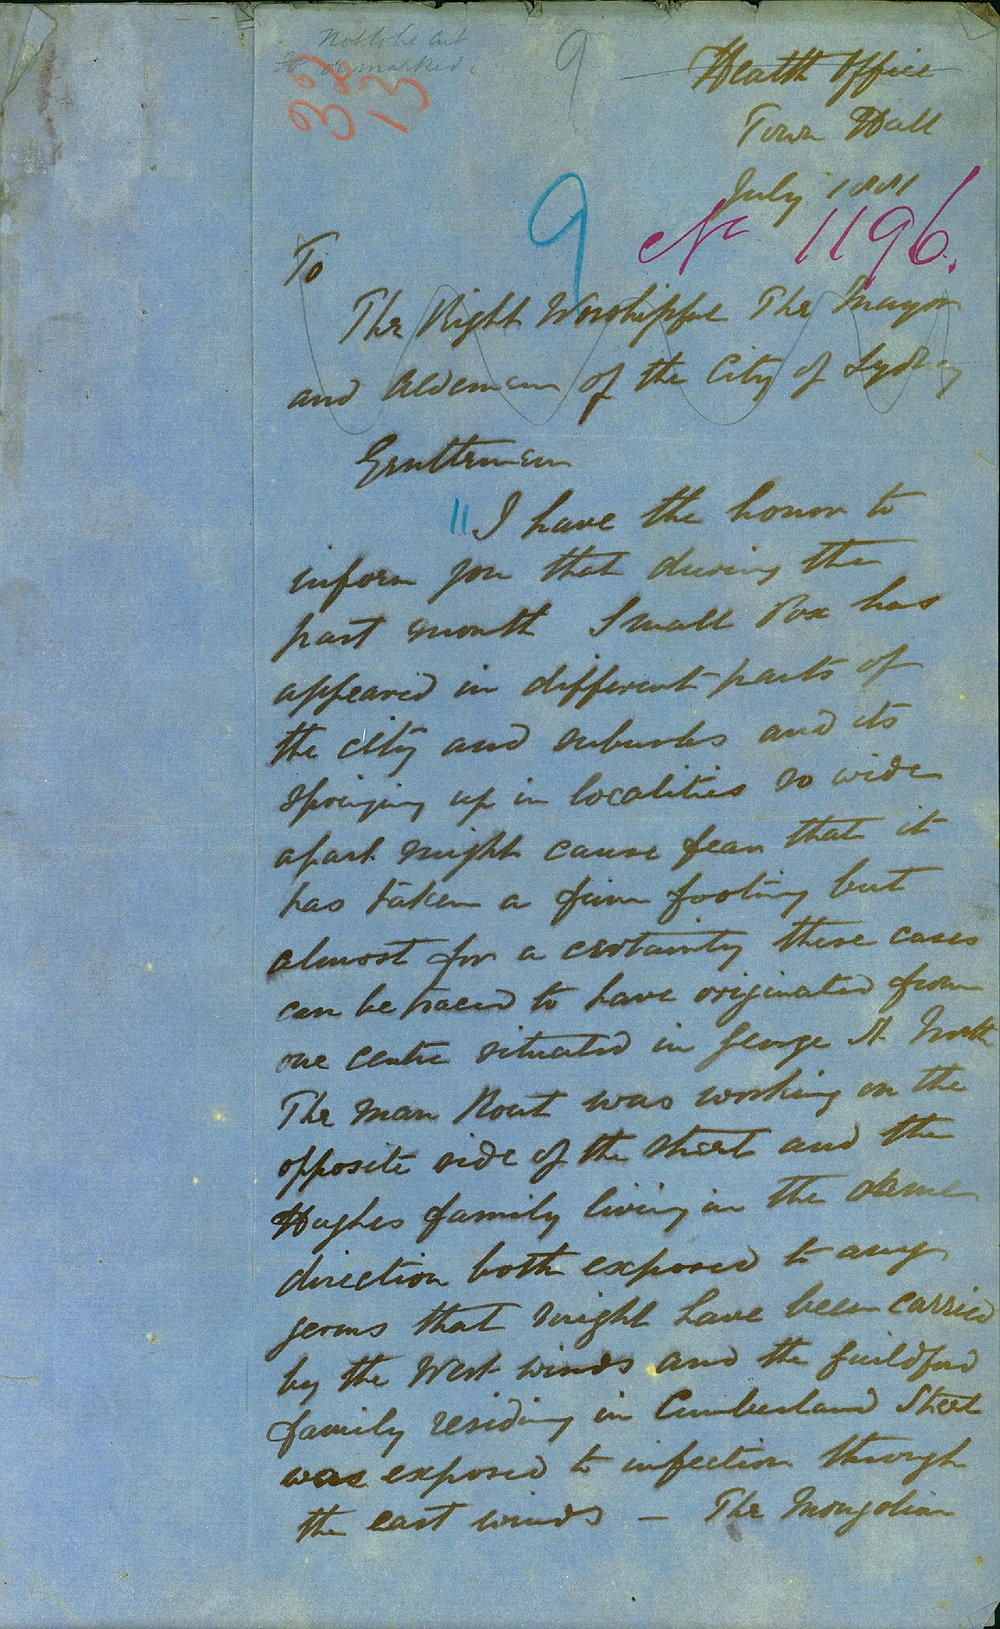 Not to be cut
or marked
32
13
9
Health Office
Town Hall
July 1881
9 No 1196.
To
The Right Worshipful The Mayor
and Aldermen of the City of Sydney
Gentlemen
" I have the honor to
inform you that during the
past month Small Pox has
appeared in different parts of
the city and suburbs and its
springing up in localities so wide
apart might cause fear that it
has taken a firm footing but
almost for a certainty these cases
can be traced to have originated from
one centre situated in George St. North
The man Rout was working on the
opposite side of the street and the
Hughes family living in the same
direction both exposed to any
germs that might have been carried
by the West winds and the Guildford
family residing in Cumberland Street
was exposed to infection through
the east winds — The Mongolian